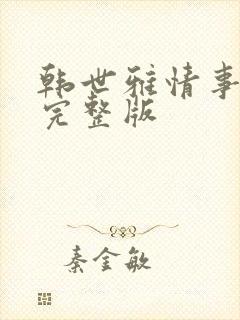 韩世雅情事
完整版
秦金敏